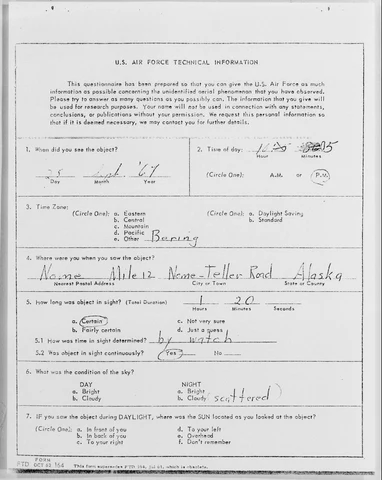 U.S. AIR FORCE TECHNICAL INFORMATION
This questionnaire has been prepared so that you can give the U.S. Air Force as much
information as possible concerning the unidentified aerial phenomenon that you have observed.
Please try to answer as many questions as you possibly can. The information that you give will
be used for research purposes. Your name will not be used in connection with any statements,
conclusions, or publications without your permission. We request this personal information so
that if it is deemed necessary, we may contact you for further details.
1. When did you see the object?
25 Sept. '67
Day Month Year
2. Time of day: 15
Hour Minutes
(Circle One): A.M. or P.M.
3. Time Zone:
(Circle One): a. Eastern
b. Central
c. Mountain
d. Pacific
e. Other Bering
(Circle One): a. Daylight Saving
b. Standard
4. Where were you when you saw the object?
Nome Mile 12 Nome-Teller Road Alaska
Nearest Postal Address City or Town State or County
5. How long was object in sight? (Total Duration) 1 20
Hours Minutes Seconds
a. Certain c. Not very sure
b. Fairly certain d. Just a guess
5.1 How was time in sight determined? by watch
5.2 Was object in sight continuously? Yes No
6. What was the condition of the sky?
DAY NIGHT
a. Bright a. Bright
b. Cloudy b. Cloudy scattered
7. IF you saw the object during DAYLIGHT, where was the SUN located as you looked at the object?
(Circle One): a. In front of you d. To your left
b. In back of you e. Overhead
c. To your right f. Don't remember
FORM
FTD OCT 62 164 This form supersedes FTD 164, Jul 61, which is obsolete.